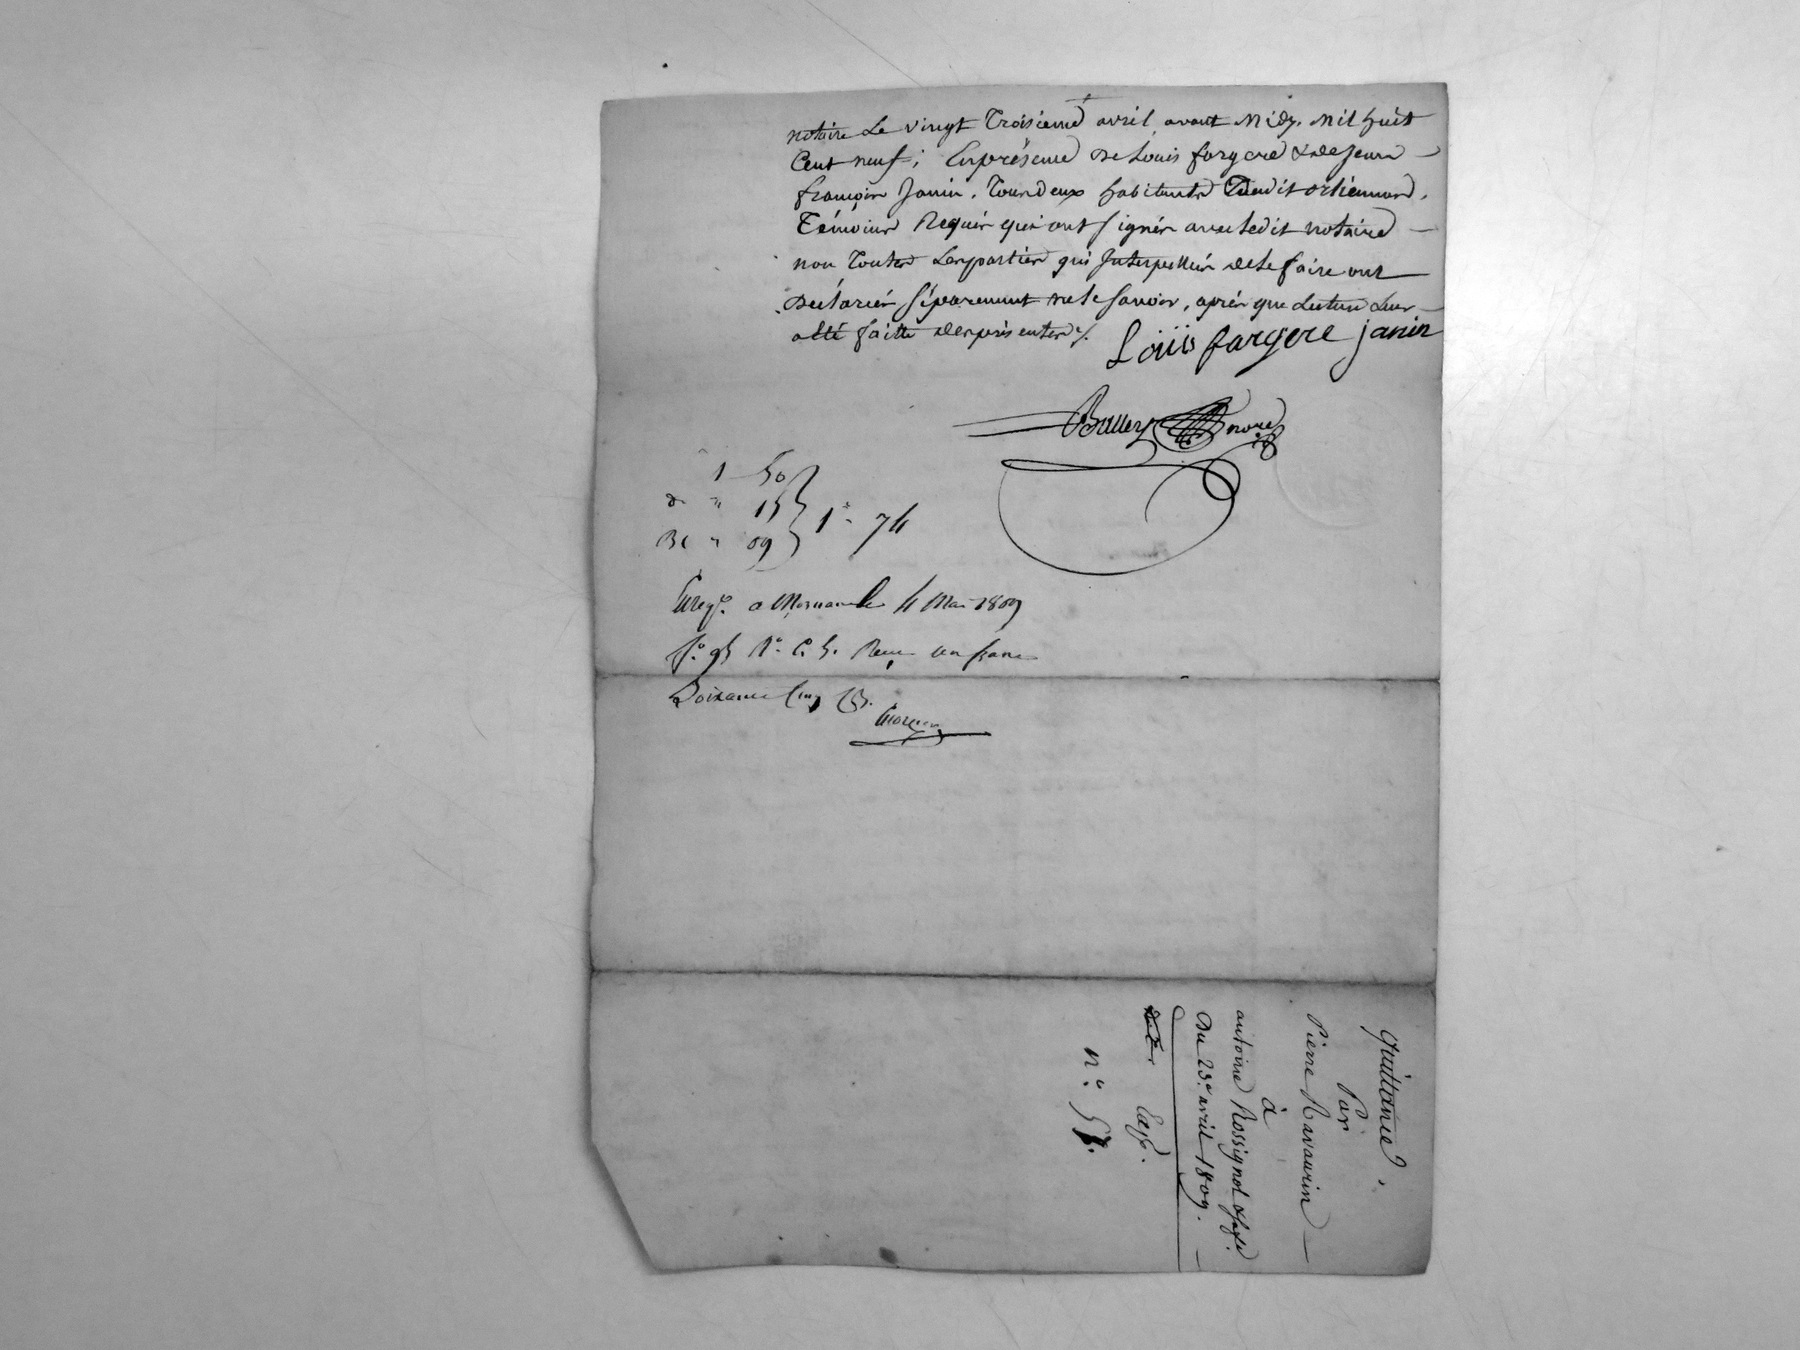 notaire Le vingt Troisieme avril avant Midy. Mil huit
Cent neuf; En présence de Louis fargere & de Jean
françois Janin. Tous deux habitants
Témoins Requis qui ont signés avec ledit notaire
non Toutes Les parties qui Interpellées de le faire ont
déclarées séparément ne le savoir, après que Lecture Leur
a été faitte des présentes ./.
Loüis fargere janin
nore
1 50
d " 15
" 09
1 " 74
Enregé. a Mornant le 4 Mai 1809
fo. 95 Ro. C. 5. Reçu un franc
Soixante
Quittance,
Par
Pierre Ravaurin
à
antoine Rossignol
Du 23e. avril 1809.
Exp.
n°. 57.